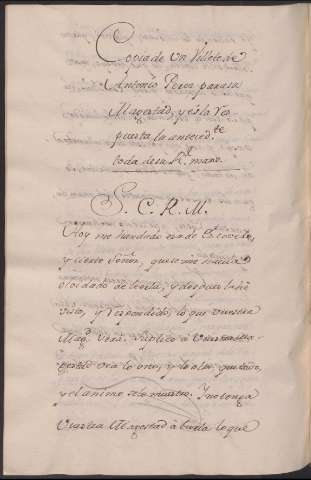 Copia de un Villete de
Antonio Perez para su
Magestad, y es la Res
puesta la antecedte
toda de su Rl mano.
S. C. R. M.
Hoy me han dado esa de Escovedo,
y cierto Señor, que se me havia
olvidado de leerla; y despues la he
visto, y respondido, lo que Vuestra
Magd verá. Suplico á Vuestra Ma-
gestad vea lo uno, y lo otro, que todo,
y el animo se muestre. Y no tenga
Vuestra Magestad á burla lo que